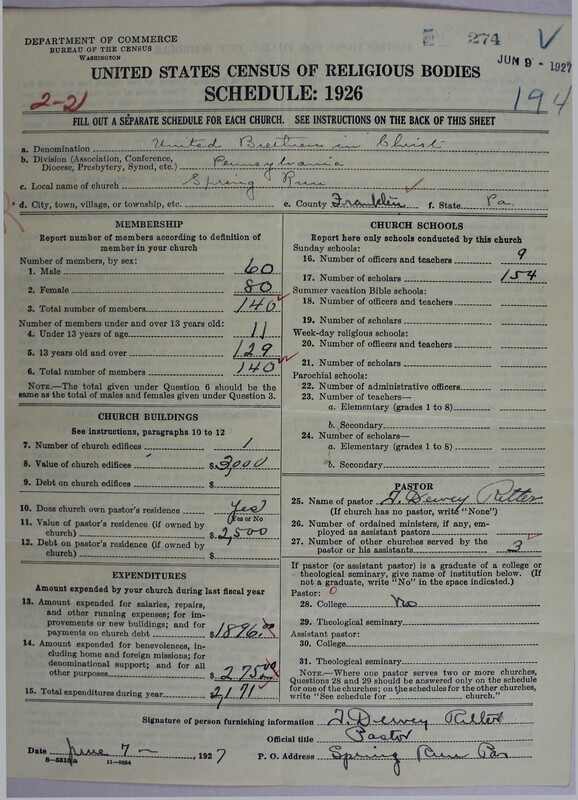 DEPARTMENT OF COMMERCE
BUREAU OF THE CENSUS
WASHINGTON
274
JUN 9 - 1927
UNITED STATES CENSUS OF RELIGIOUS BODIES
SCHEDULE: 1926
2-21
194
FILL OUT A SEPARATE SCHEDULE FOR EACH CHURCH. SEE INSTRUCTIONS ON THE BACK OF THIS SHEET
a. Denomination United Brethren in Christ
b. Division (Association, Conference, Diocese, Presbytery, Synod, etc.) Pennsylvania
c. Local name of church Spring Run
d. City, town, village, or township, etc. e. County Franklin f. State Pa.
MEMBERSHIP
Report number of members according to definition of
member in your church
Number of members, by sex:
1. Male 60
2. Female 80
3. Total number of members 140
Number of members under and over 13 years old:
4. Under 13 years of age 11
5. 13 years old and over 129
6. Total number of members 140
NOTE.—The total given under Question 6 should be
same as the total of males and females given under Question 3.
CHURCH BUILDINGS
See instructions, paragraphs 10 to 12
7. Number of church edifices 1
8. Value of church edifices $ 3,000
9. Debt on church edifices $
10. Does church own pastor's residence? Yes
(Yes or No)
11. Value of pastor's residence (if owned by
church) $ 2,500
12. Debt on pastor's residence (if owned by
church) $
EXPENDITURES
Amount expended by your church during last fiscal year
13. Amount expended for salaries, repairs,
and other running expenses; for im-
provements or new buildings; and for
payments on church debt $ 1896.00
14. Amount expended for benevolences,
including home and foreign missions; for
denominational support; and for all
other purposes $ 275.00
15. Total expenditures during year 2,171
CHURCH SCHOOLS
Report here only schools conducted by this church
Sunday schools:
16. Number of officers and teachers 9
17. Number of scholars 154
Summer vacation Bible schools:
18. Number of officers and teachers
19. Number of scholars
Week-day religious schools:
20. Number of officers and teachers
21. Number of scholars
Parochial schools:
22. Number of administrative officers
23. Number of teachers—
a. Elementary (grades 1 to 8)
b. Secondary
24. Number of scholars—
a. Elementary (grades 1 to 8)
b. Secondary
PASTOR
25. Name of pastor F. Dewey Ritter
(If church has no pastor, write "None")
26. Number of ordained ministers, if any, em-
ployed as assistant pastors
27. Number of other churches served by the
pastor or his assistants 3
If pastor (or assistant pastor) is a graduate of a college or
theological seminary, give name of institution below. (If
not a graduate, write "No" in the space indicated.)
Pastor: 0
28. College No
29. Theological seminary
Assistant pastor:
30. College
31. Theological seminary
NOTE.—Where one pastor serves two or more churches,
Questions 28 and 29 should be answered only on the schedule
for one of the churches; on the schedules for the other churches,
write "See schedule for church."
Signature of person furnishing information F. Dewey Ritter
Official title Pastor
Date June 7 — , 1927 P. O. Address Spring Run Pa
8-5518a 11-0054